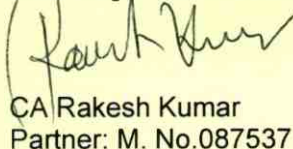 CA Rakesh Kumar
Partner: M. No.087537